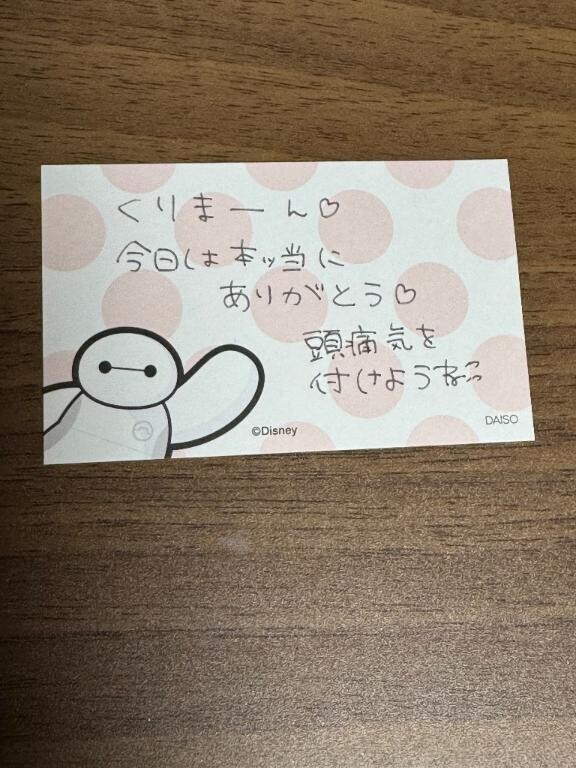 くりまーん♡
今日は本ッ当に
ありがとう♡
頭痛気を
付けようね
©Disney
DAISO